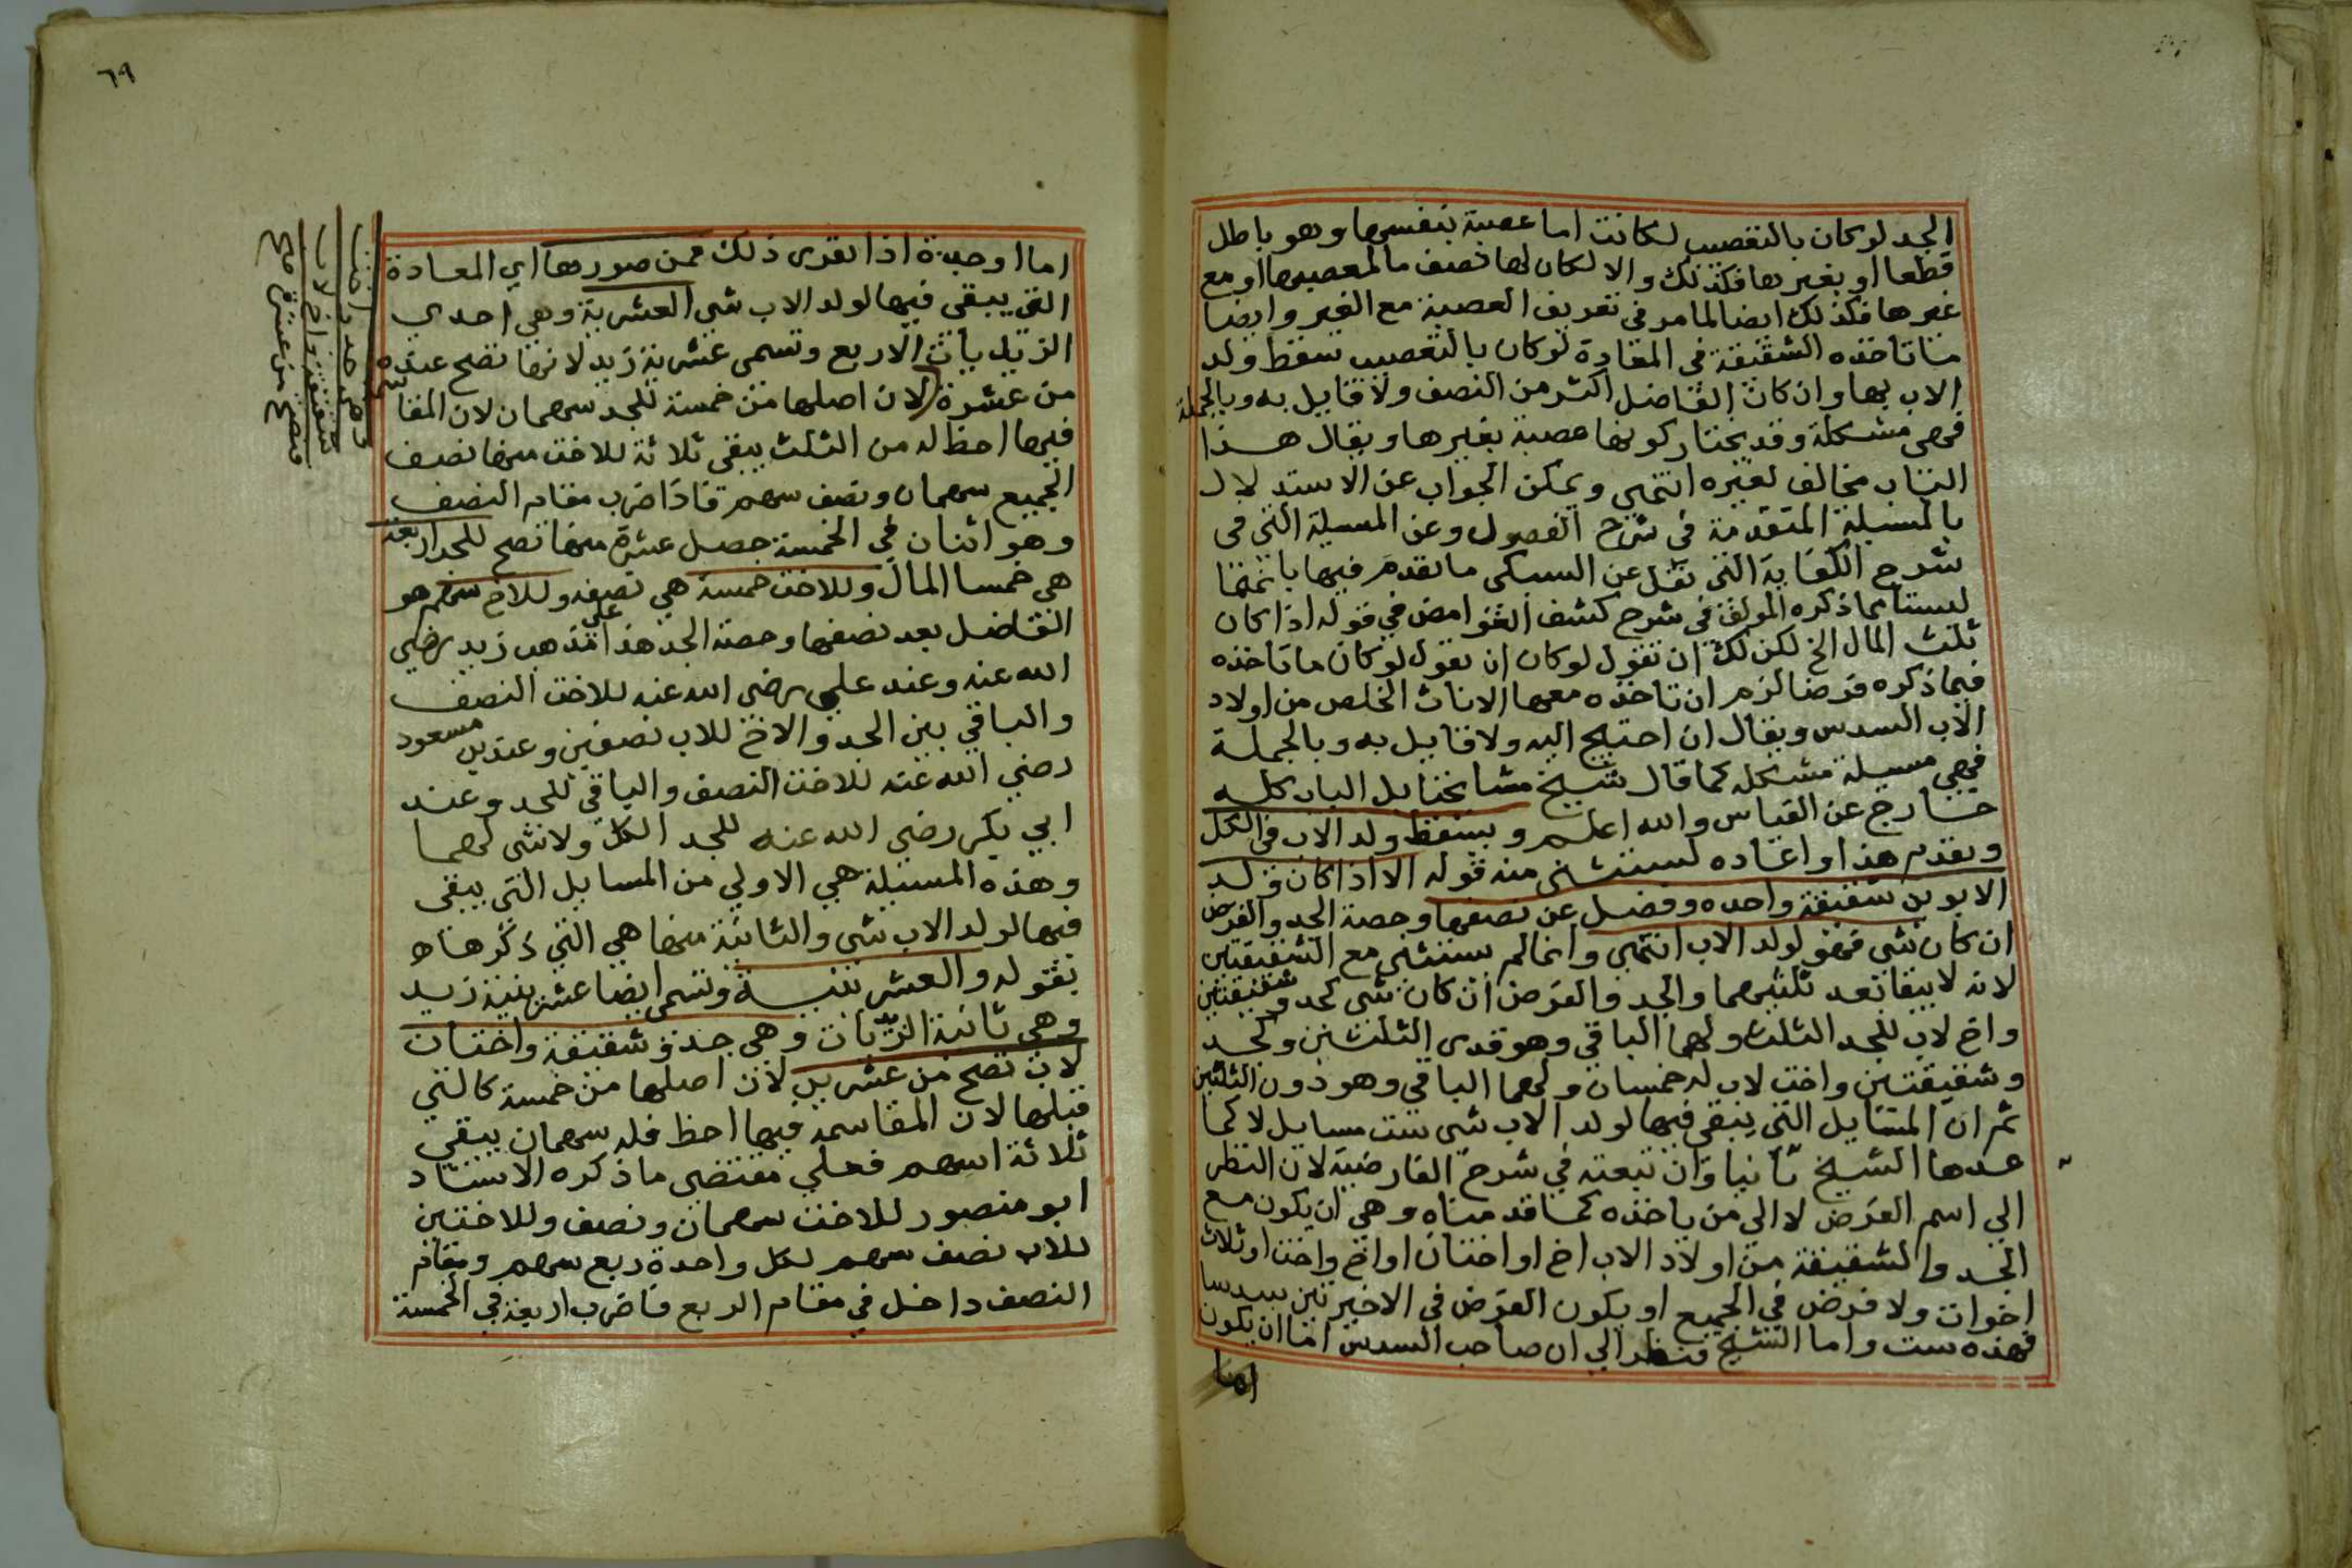 الجد لو كان بالتعصيب لكانت اما عصبة بنفسها وهو باطل
قطعا او بغيرها فكذلك والا لكان لها نصف ما لمعصبها او مع
غيرها فكذلك ايضا لما مر في تعريف العصبة مع الغير وايضا
ما تاخذه الشقيقة في المعادة لو كان بالتعصيب سقط ولد
الاب بها وان كان الفاضل اكثر من النصف ولا قايل به وبالجملة
فهي مشكلة وقد يختار كونها عصبة بغيرها ويقال هذا
الباب مخالف لغيره انتهي ويمكن الجواب عن الاستدلال
بالمسيلة المتقدمة في شرح الفصول وعن المسيلة التي في
شرح الكفاية التي نقل عن السبكي ما تقدم فيها بانهما
ليستا مما ذكره المولف في شرح كشف الغوامض في قوله اذا كان
ثلث المال الخ لكن لك ان تقول لو كان ان تقول لو كان ما تاخذه
فيما ذكره فرضا لزم ان تاخذه معها الاناث الخلص من اولاد
الاب السدس ويقال ان احتيج اليه ولا قايل به وبالجملة
فهي مسيلة مشكله كما قال شيخ مشايخنا بل الباب كله
خارج عن القياس والله اعلم ويسقط ولد الاب في الكل
وتقدم هذا واعاده ليستثني منه قوله الا اذا كان ولد
الابوين شقيقة واحده وفضل عن نصفها وحصة الجد والفرض
ان كان شي فهو لولد الاب انتهي وانما لم يستثني مع الشقيقتين
لانه لا يبقا بعد ثلثيهما والجد والفرض ان كان شي كجد وشقيقتين
واخ لاب للجد الثلث ولهما الباقي وهو قدر الثلثين وكجد
وشقيقتين واخت لاب له خمسان ولهما الباقي وهو دون الثلثين
ثم ان المسايل التي يبقي فيها لولد الاب شي ست مسايل لا كما
عدها الشيخ ثانيا وان تبعته في شرح الفارضية لان النظر
الي اسم الفرض لا الي من ياخذه كما قدمناه وهي ان يكون مع
الجد والشقيقة من اولاد الاب اخ او اختان او اخ واخت او ثلاث
اخوات ولا فرض في الجميع او يكون الفرض في الاخيرتين سدسا
فهذه ست واما الشيخ فنظر الي ان صاحب السدس اما ان يكون
اما
٦٩
اما او جدة اذا تقرر ذلك فمن صورها اي المعادة
التي يبقي فيها لولد الاب شي العشرية وهي احدي
الزيديات الاربع وتسمي عشرية زيد لانها تصح عنده
من عشرة لان اصلها من خمسة للجد سهمان لان المقاسمة
فيها احظ له من الثلث يبقي ثلاثة للاخت منها نصف
الجميع سهمان ونصف سهم فاذا ضرب مقام النصف
وهو اثنان في الخمسة حصل عشرة منها تصح للجد اربعة
هي خمسا المال وللاخت خمسة هي نصفه وللاخ سهم هو
الفاضل بعد نصفها وحصة الجد هذا علي مذهب زيد رضي
الله عنه وعند علي رضي الله عنه للاخت النصف
والباقي بين الجد والاخ للاب نصفين وعند بن مسعود
رضي الله عنه للاخت النصف والباقي للجد وعند
ابي بكر رضي الله عنه للجد الكل ولا شي لهما
وهذه المسيلة هي الاولي من المسايل التي يبقي
فيها لولد الاب شي والثانية منها هي التي ذكرها
بقوله والعشرينية وتسمي ايضا عشرينية زيد
وهي ثانية الزيديات وهي جد وشقيقة واختان
لاب تصح من عشرين لان اصلها من خمسة كالتي
قبلها لان المقاسمة فيها احظ فله سهمان يبقي
ثلاثة اسهم فعلي مقتضي ما ذكره الاستاد
ابو منصور للاخت سهمان ونصف وللاختين
للاب نصف سهم لكل واحدة ربع سهم ومقام
النصف داخل في مقام الربع فاضرب اربعة في الخمسة
وهي جد واخت
شقيقة واخ لاب
فتصح من عشرة